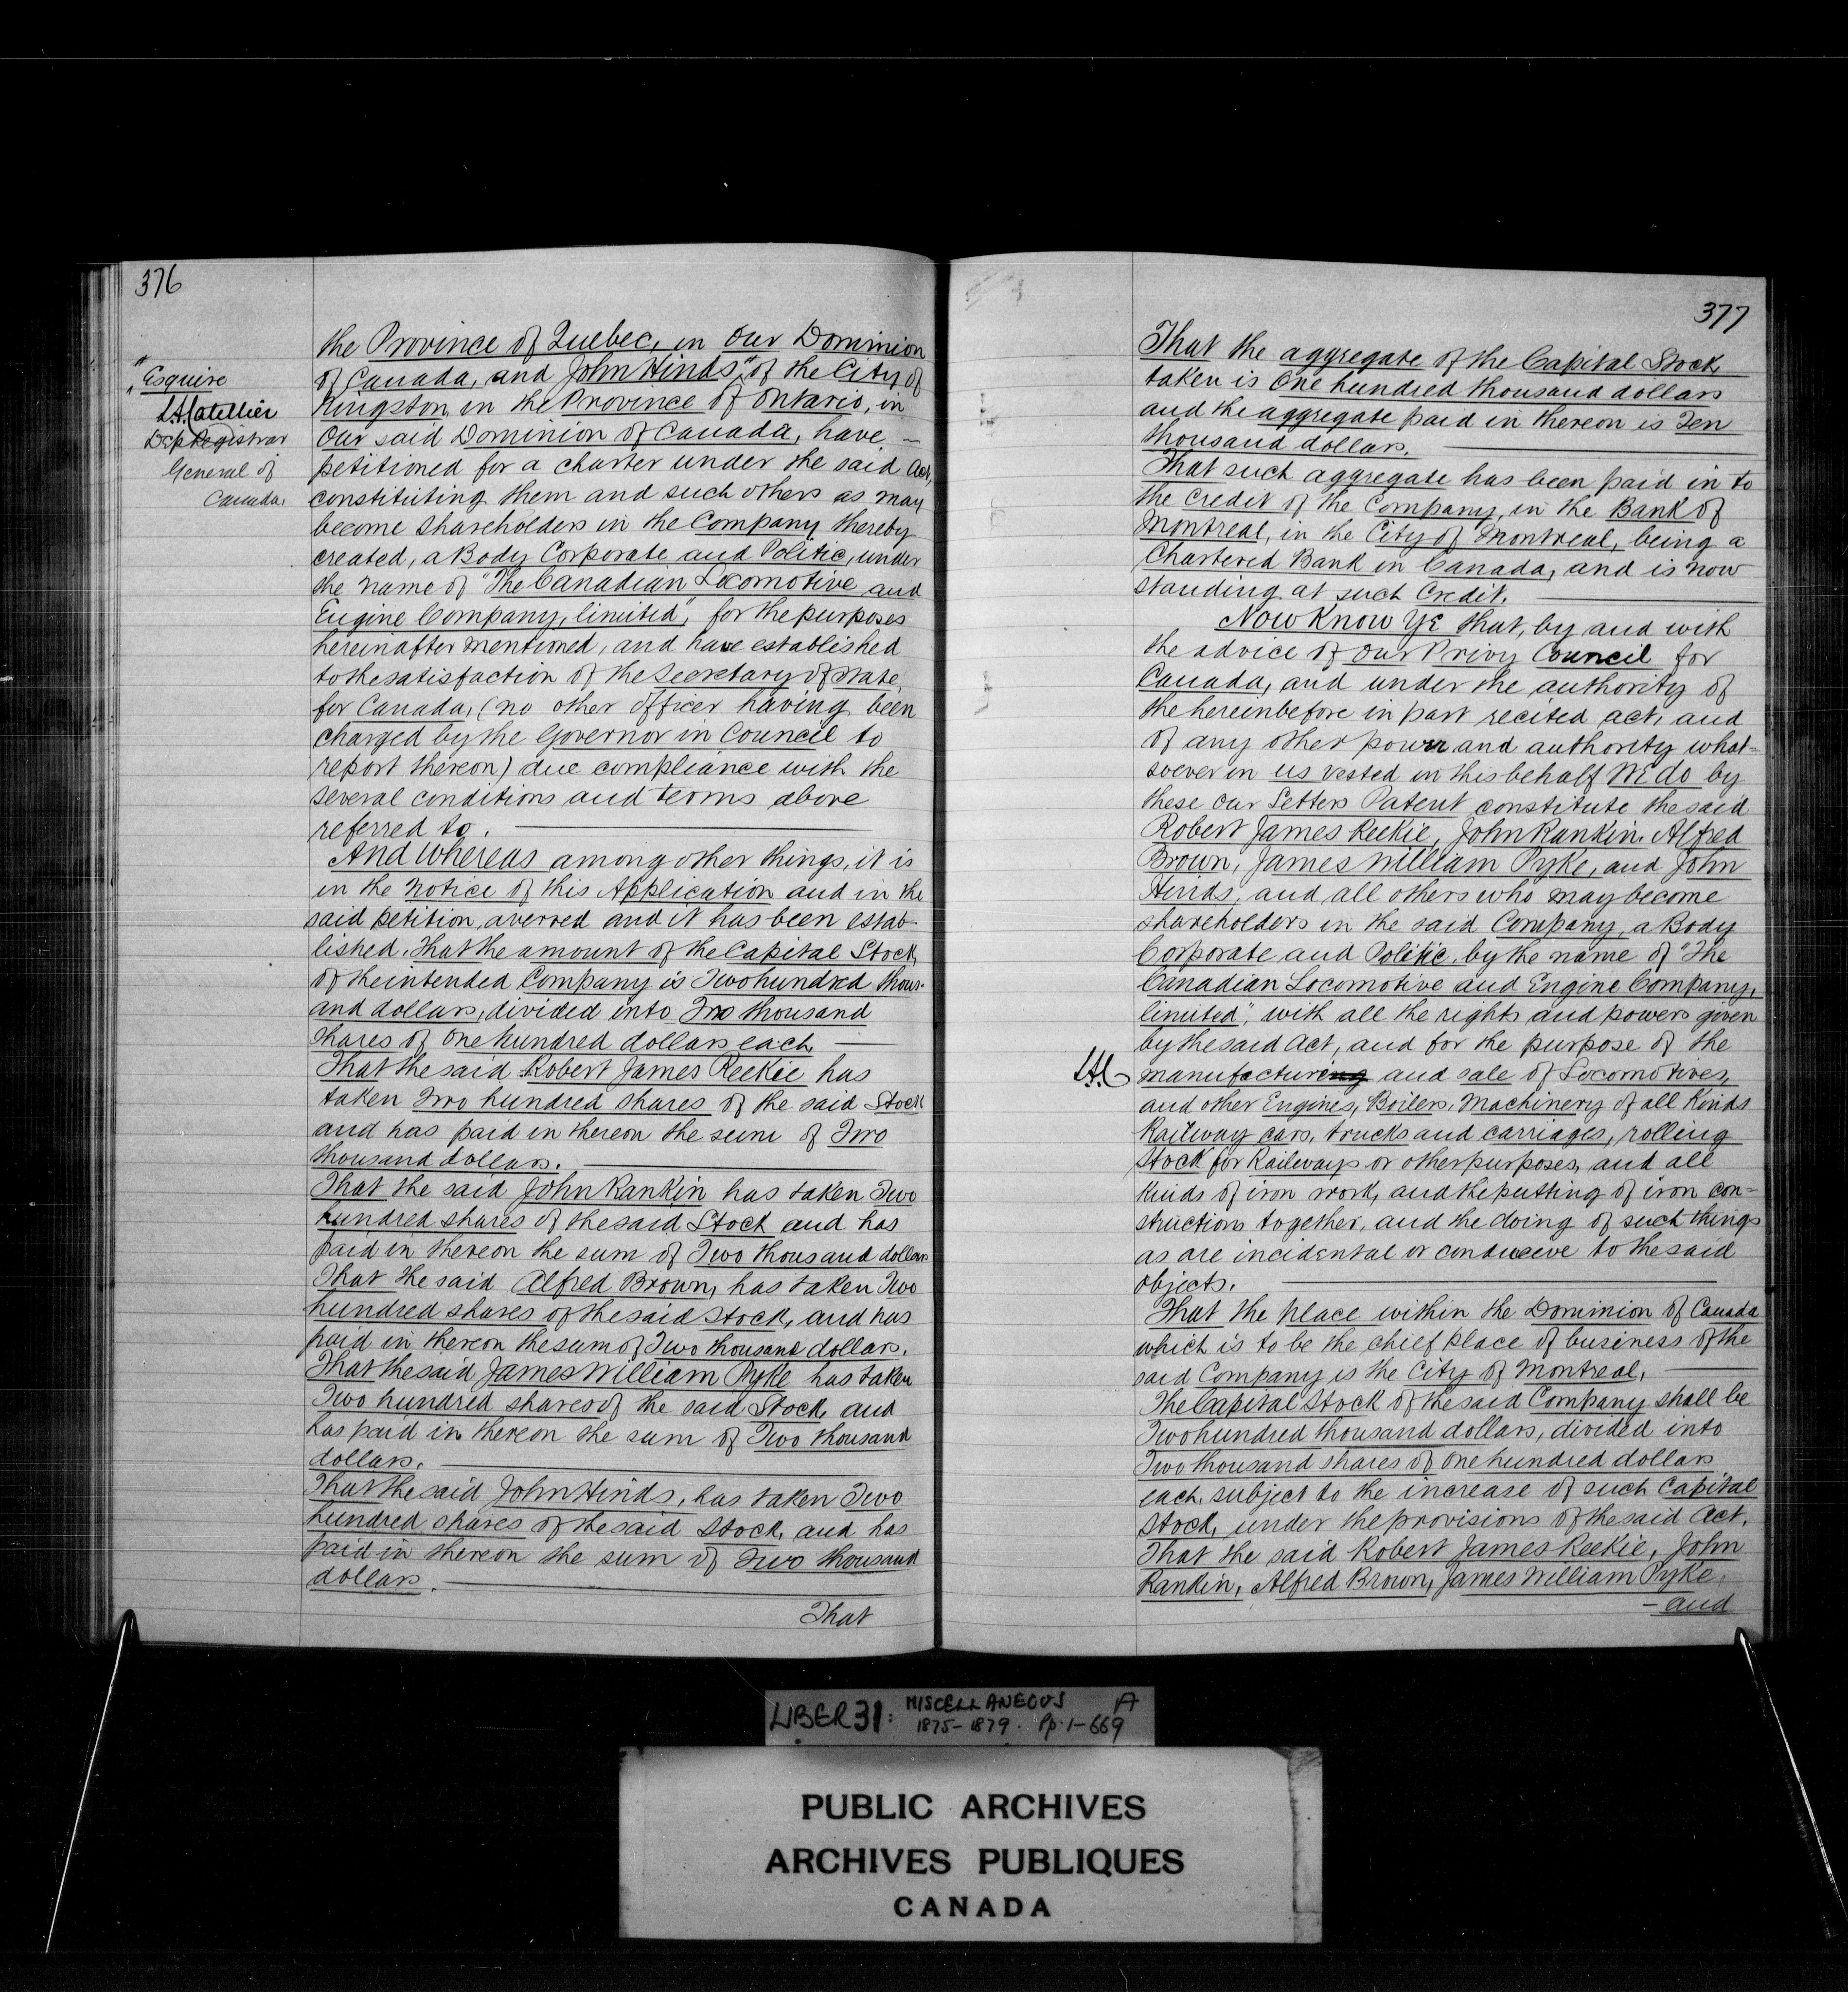 376
" Esquire
L.A. Catellier
Dep Registrar
General of
Canada.
the Province of Quebec, in Our Dominion
of Canada, and John Hinds," of the City of
Kingston, in the Province of Ontario, in
Our said Dominion of Canada, have —
petitioned for a charter under the said Act,
constituting them and such others as may
become shareholders in the Company thereby
created, a Body Corporate and Politic, under
the name of "The Canadian Locomotive and
Engine Company, limited", for the purposes
hereinafter mentioned, and have established
to the satisfaction of the Secretary of State,
for Canada, (no other Officer having been
charged by the Governor in Council to
report thereon) due compliance with the
several conditions and terms above
referred to.
And Whereas among other things, it is
in the notice of this Application and in the
said petition, averred and it has been estab-
lished, that the amount of the Capital Stock
of the intended Company is Two hundred thous-
and dollars, divided into Two thousand
shares of One hundred dollars each —
That the said Robert James Reekie has
taken Two hundred shares of the said Stock
and has paid in thereon the sum of Two
thousand dollars.
That the said John Rankin has taken Two
hundred shares of the said Stock and has
paid in thereon the sum of Two thousand dollars
That the said Alfred Brown, has taken Two
hundred shares of the said Stock, and has
paid in thereon the sum of Two thousand dollars.
That the said James William Pyke has taken
Two hundred shares of the said Stock, and
has paid in thereon the sum of Two thousand
dollars.
That the said John Hinds, has taken Two
hundred shares of the said Stock, and has
paid in thereon the sum of Two thousand
dollars.
That
377
That the aggregate of the Capital Stock
taken is One hundred thousand dollars
and the aggregate paid in thereon is Ten
thousand dollars.
That such aggregate has been paid in to
the credit of the Company, in the Bank of
Montreal, in the City of Montreal, being a
Chartered Bank in Canada, and is now
standing at such Credit.
Now Know Ye that, by and with
the advice of Our Privy Council for
Canada, and under the authority of
the hereinbefore in part recited act, and
of any other power and authority what-
soever in us vested in this behalf We do by
these Our Letters Patent constitute the said
Robert James Reekie, John Rankin, Alfred
Brown, James William Pyke, and John
Hinds, and all others who may become
shareholders in the said Company, a Body
Corporate and Politic, by the name of "The
Canadian Locomotive and Engine Company,
limited", with all the rights and powers given
by the said Act, and for the purpose of the
L.A.C. manufactureing and sale of Locomotives,
and other Engines, Boilers, Machinery of all Kinds
Railway cars, trucks and carriages, rolling
Stock for Railways or other purposes, and all
Kinds of iron work, and the putting of iron con-
structions together, and the doing of such things
as are incidental or conducive to the said
objects.
That the place within the Dominion of Canada
which is to be the chief place of business of the
said Company is the City of Montreal.
The Capital Stock of the said Company shall be
Two hundred thousand dollars, divided into
Two thousand shares of One hundred dollars
each, subject to the increase of such Capital
Stock, under the provisions of the said Act.
That the said Robert James Reekie, John
Rankin, Alfred Brown, James William Pyke,
— and
LIBER 31: MISCELLANEOUS A
1875-1879. Pp. 1-669
PUBLIC ARCHIVES
ARCHIVES PUBLIQUES
CANADA